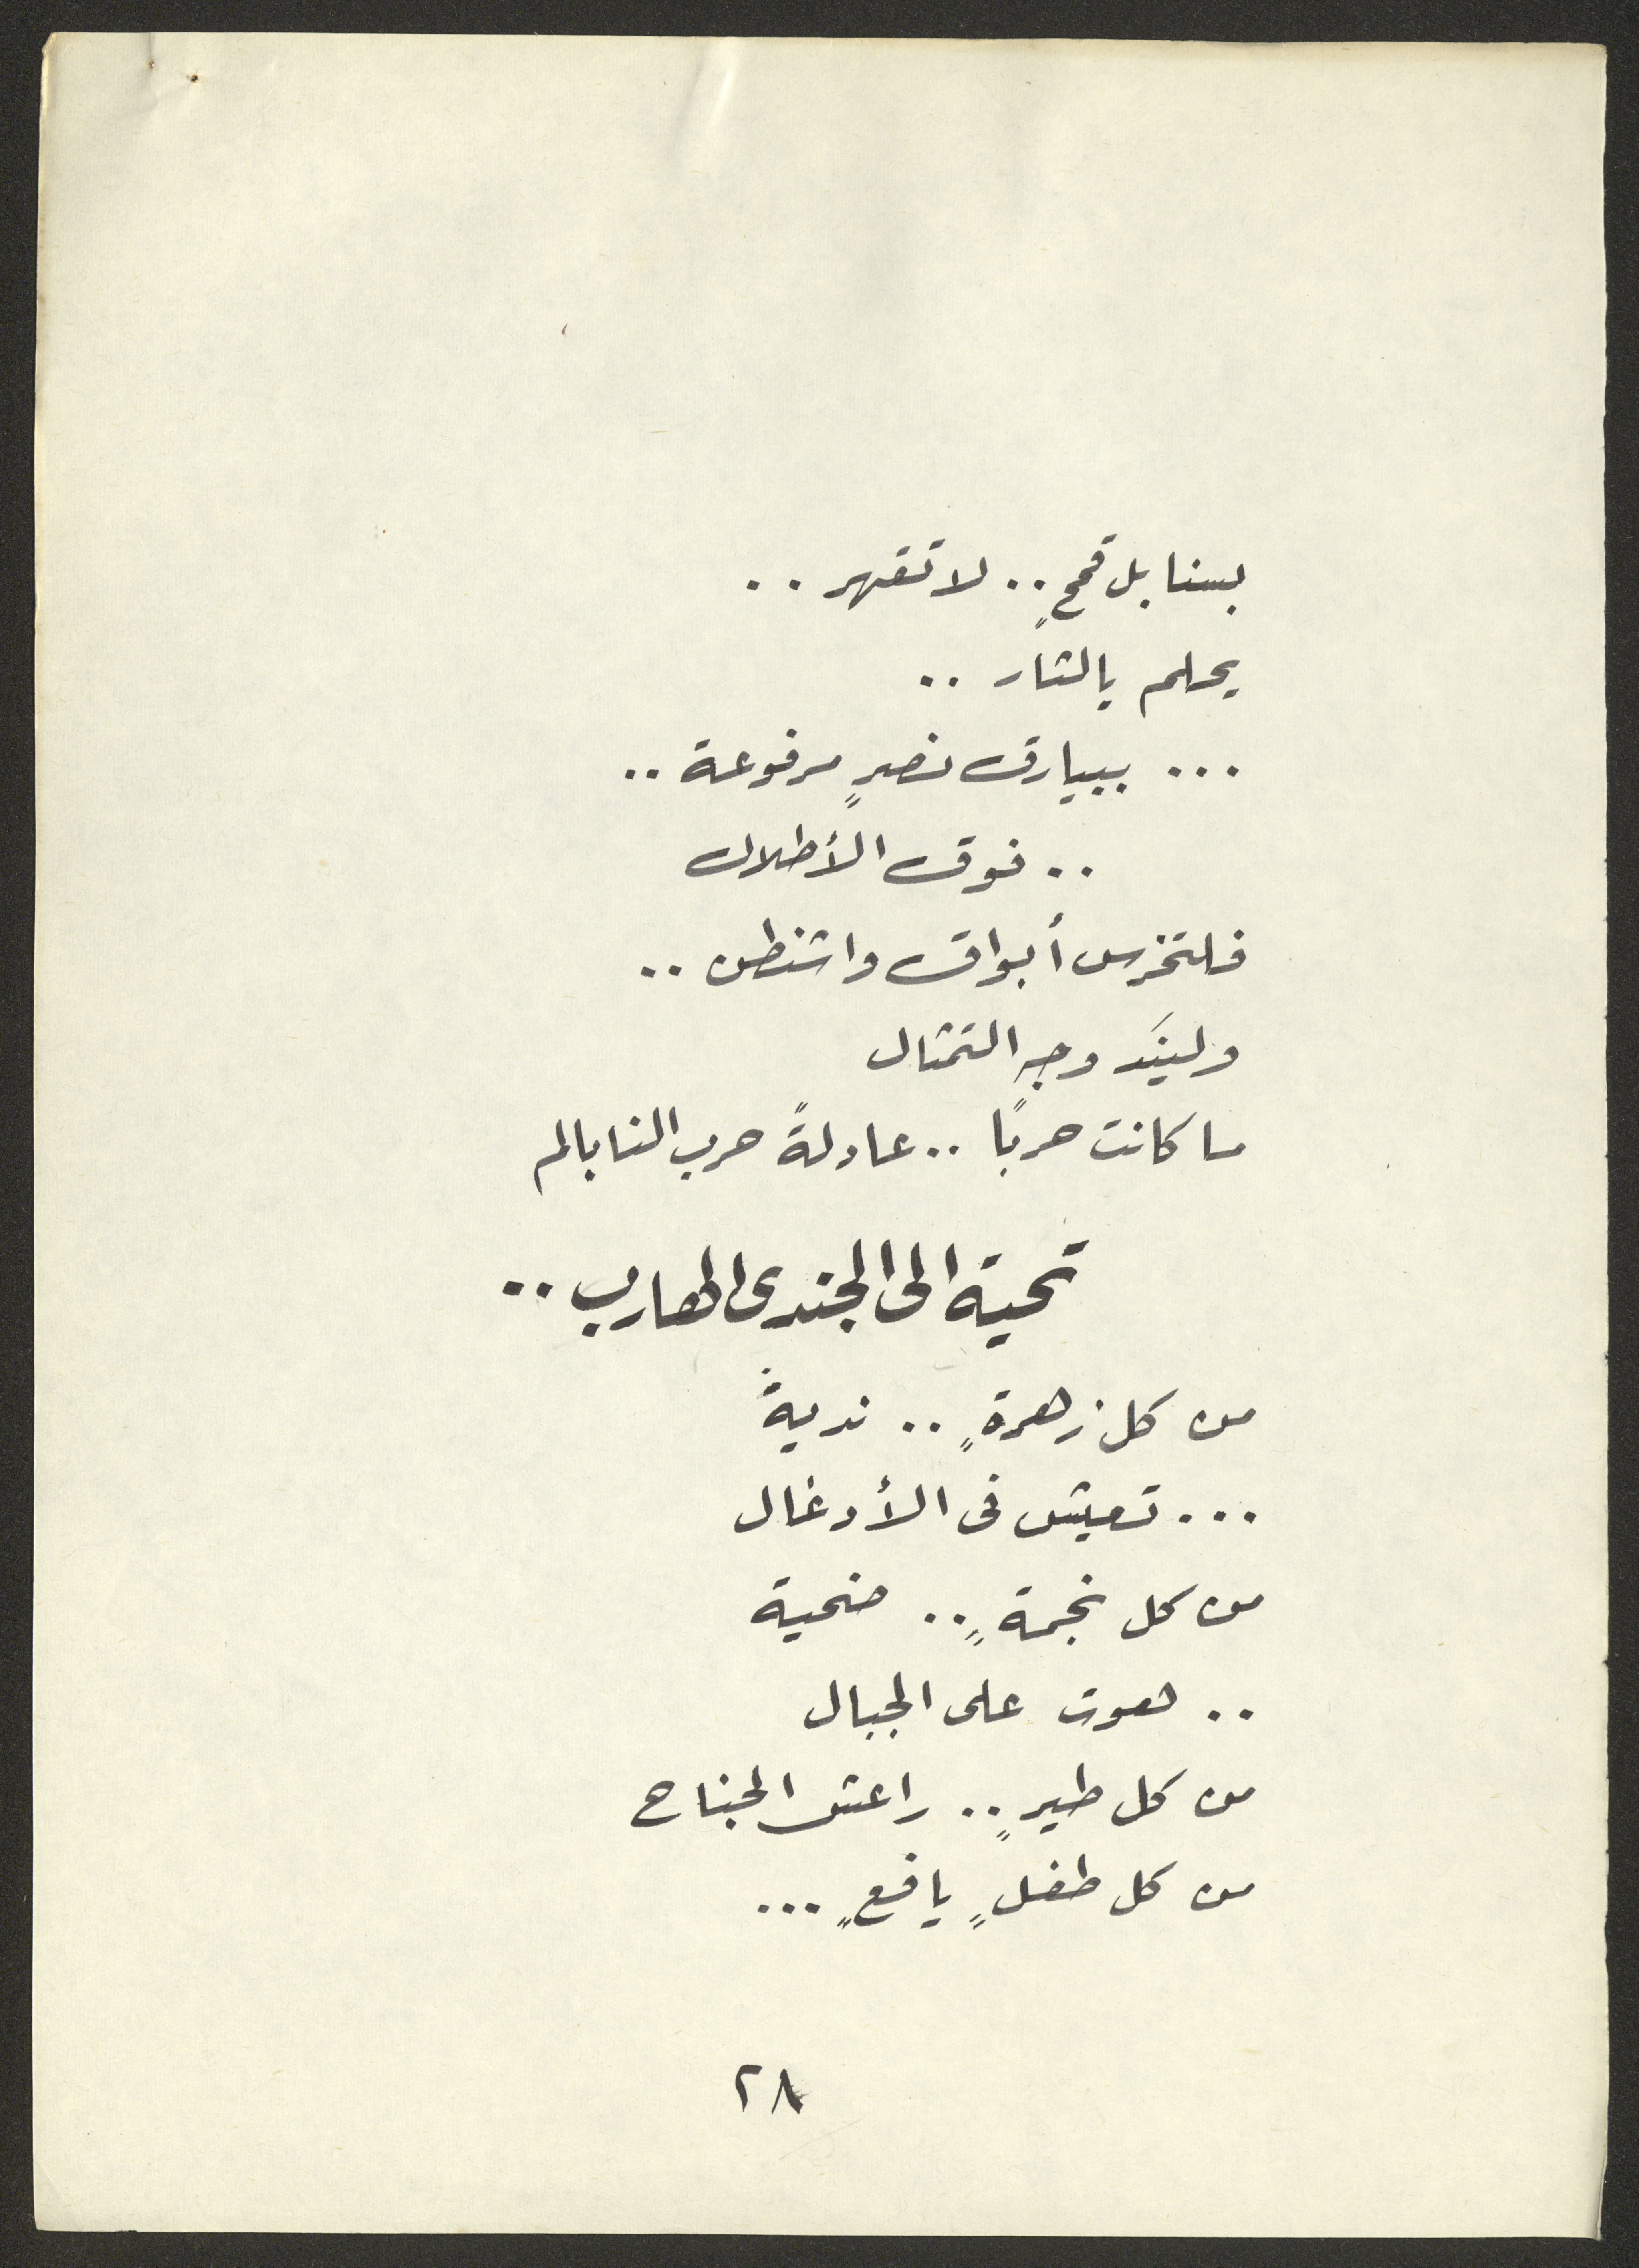 بسنابل قمحٍ .. لا تقهر ..
يحلم بالثأر ..
... ببيارق نصرٍ مرفوعة ..
.. فوق الأطلال
فلتخرس أبواق واشنطن ..
وليَند وجه التمثال
ما كانت حربًا .. عادلةً حرب النابالم
تحية الى الجندى الهارب ..
من كل زهرةٍ .. نديةً
... تعيش فى الأدغال
من كل نجمةٍ .. ضحية
.. هوت على الجبال
من كل طيرٍ .. راعش الجناح
من كل طفلٍ يافعٍ ...
٢٨